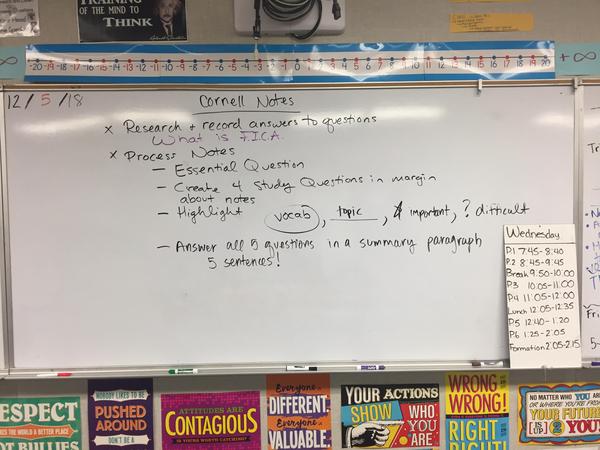 TRAINING
OF THE MIND TO
THINK
∞
-20 -19 -18 -17 -16 -15 -14 -13 -12 -11 -10 -9 -8 -7 -6 -5 -4 -3 -2 -1 0 1 2 3 4 5 6 7 8 9 10 11 12 13 14 15 16 17 18 19 20
+∞
12/5/18
Cornell Notes
x Research + record answers to questions
What is F.I.C.A.
x Process Notes
— Essential Question
— Create 4 Study Questions in margin
about notes
— Highlight (vocab), topic, * important, ? difficult
— Answer all 5 questions in a summary paragraph
5 sentences!
Wednesday
P.1 7:45-8:40
P.2 8:45-9:45
Break 9:50-10:00
P3 10:05-11:00
P4 11:05-12:00
Lunch 12:05-12:35
P5 12:40-1:20
P6 1:25-2:05
Formation 2:05-2:15
RESPECT
THE WORLD A BETTER PLACE
NOT BULLIES
NOBODY LIKES TO BE
PUSHED
AROUND
DON'T BE A
ATTITUDES ARE
CONTAGIOUS
IS YOURS WORTH CATCHING?
Everyone is
DIFFERENT.
Everyone is
VALUABLE.
YOUR ACTIONS
SHOW WHO
YOU
ARE
WRONG
WRONG!
RIGHT
RIGHT!
NO MATTER WHO YOU ARE
OR WHERE YOU'RE FROM
YOUR FUTURE
IS UP 2 YOU!